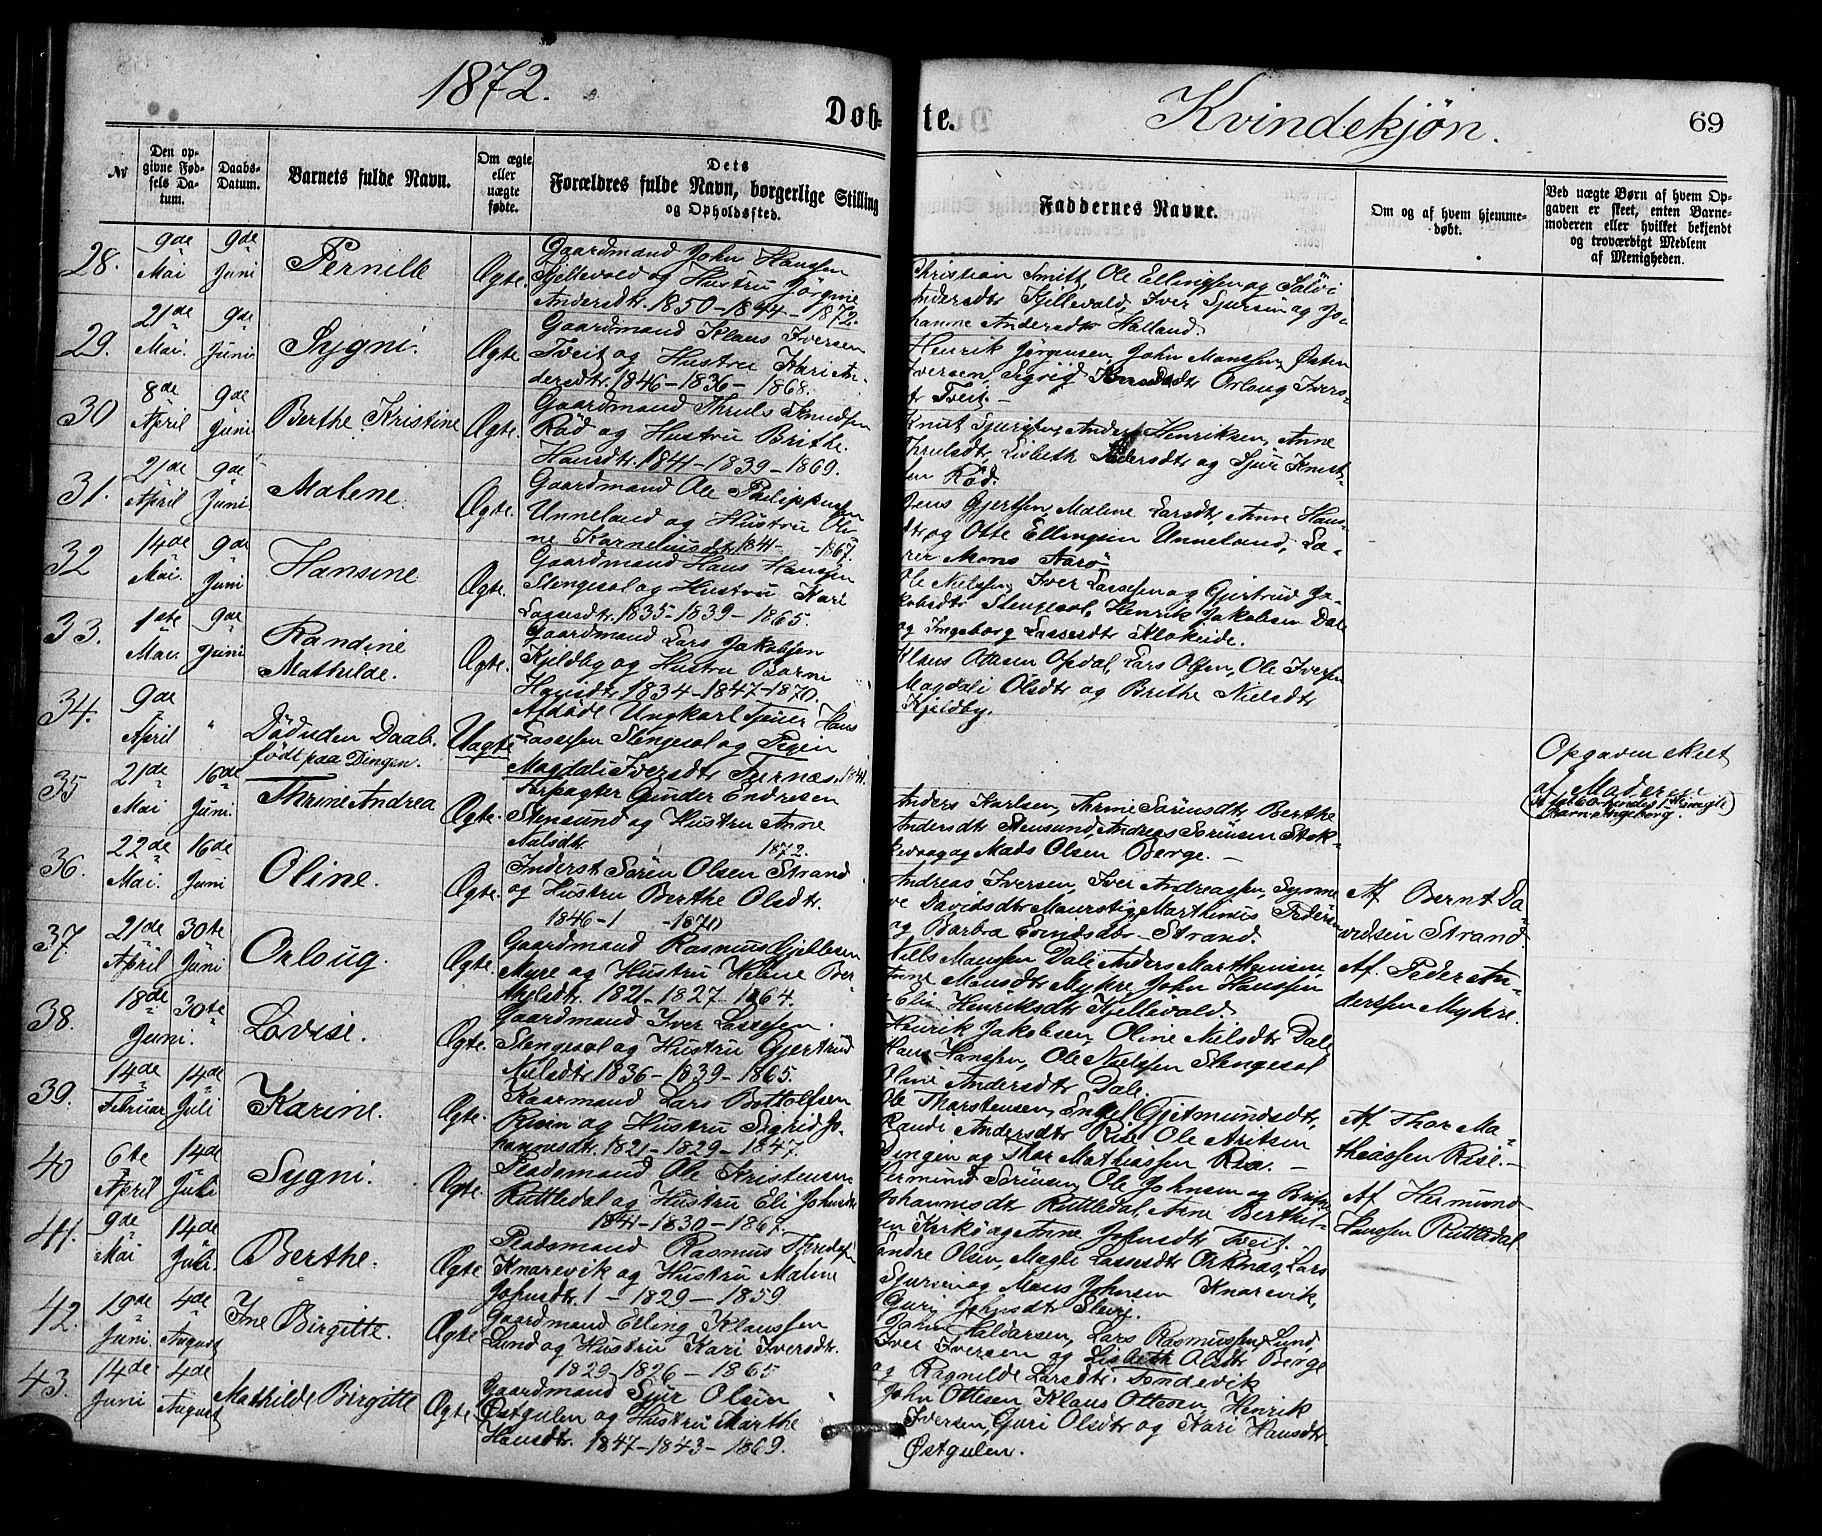 1872.
Døb-
te.
Kvindekjøn.
69
No
Den op-
givne Fød-
sels Da-
tum.
Daabs-
Datum.
Barnets fulde Navn.
Om ægte
eller
uægte
fødte.
Dets
Forældres fulde Navn, borgerlige Stilling
og Opholdssted.
Faddernes Navne.
Om og af hvem hjemme-
døbt.
Ved uægte Børn af hvem Op-
gaven er skeet, enten Barne-
moderen eller hvilket bekjendt
og troværdigt Medlem
af Menigheden.
28.
9de
Mai
9de
Juni
Pernille
Ægte.
Gaardmand John Hanssen
Kjellevold og Hustru Jørgine
Andersdtr. 1850-1844-1872.
Christian Smitt, Ole Ellingsen og Salvi
Andersdtr Kjellevold, Iver Sjursen og Jo-
hanne Andersdtr Halland
29.
21de
Mai.
9de
Juni
Sygni.
Ægte
Gaardmand Klaus Iversen
Tveit og Hustru Kari An-
dersdtr. 1846-1836-1868.
Henrik Jørgensen, John Monssen, Østen
Iversen, Sigrid Orloug Ivers-
dt Tveit.-
30
8de
April
9de
Juni
Berthe Kristine
Ægte.
Gaardmand Thruls Knudsen
Rød og Hustru Brithe
Hansdtr. 1841-1839-1869.
Knut Sjursen, Anders Henriksen, Anne
Thrulsdtr, Lisbeth Pedersdtr og Sjur Knut-
sen Rød.
31.
21de
April
9de
Juni
Malene
Ægte.
Gaardmand Ole Philippussen
Unneland og Hustru Oli-
ne Korneliusdtr. 1841- -1867.
Jens Gjertsen, Malene Larsdtr, Anne Hans-
dtr og Otte Ellingsen Unneland, Læ-
rer Mons Aarø
32
14de
Mai.
9de
Juni
Hansine
Ægte.
Gaardmand Hans Hanssen
Stengesol og Hustru Kari
Lassesdtr. 1835-1839-1865.
Ole Nielssen, Iver Lassesen og Gjertrud Ja-
kobsdtr Stengesol, Henrik Jakobsen Dale
og Ingeborg Lassesdtr Klokeide.
33.
1ste
Mai.
9de
Juni
Randine
Mathilde.
Ægte.
Gaardmand Lars Jakobsen
Kjeldby og Hustru Barni
Hansdtr. 1834-1847-1870.
Klaus Ottesen Opdal, Lars Olsen, Ole Iversen
Magdali Olsdtr og Brithe Nielsdtr
Kjeldby.
34.
9de
April
"
Død uden Daab.
født paa Dingen.
Uægte
Afdøde Ungkarl Hans
Lassesen Stengesol og Pigen
Magdali Iversdtr Furnæs. 1841.
Opgaven skeet
af Moderen
35
21de
Mai
16de
Juni.
Thrine Andrea
Ægte.
Forpagter Gunder Endresen
Stensund og Hustru Anne
Nilsdtr. 1872.
Anders Karlsen, Thrine Sørensdtr, Berthe
Andersdtr Stensund, Andreas Sørensen Stok-
kevaag og Mads Olsen Berge.-
36.
22de
Mai.
16de
Juni
Oline.
Ægte.
Inderst Søren Olsen Strand
og Hustru Berthe Olsdtr.
1846-1 -1870
Andreas Iversen, Iver Andreassen, Synne-
ve Davidsdtr Maurstig, Marthinus Pedersen
og Barbra Strand.
Af Bernt Da-
vidsen Strand
37.
21de
April
30te
Juni
Orloug.
Ægte.
Gaardmand Rasmus Gjellesen
Myre og Hustru Helene Ber-
thelsdtr. 1821-1827-1864.
Nills Monssen Dale, Anders Marthinsen
Anne Monsdtr Mykre, John Hanssen
Elin Henriksdtr Kjellevold.
Af. Peder An-
derssen Mykre.
38.
18de
Juni.
30te
Lovise.
Ægte.
Gaardmand Iver Lassesen
Stengesol og Hustru Gjertrud
Nielsdtr. 1836-1839-1865.
Henrik Jakobsen, Oline Nielsdtr Dale
Hans Hanssen, Ole Nielssen Stengesol
Oline Andersdtr Dale.
39.
14de
Februar
14de
Juli
Karine.
Ægte.
Kaarmand Lars Bottolfsen
Risen og Hustru Sigrid Jo-
hannesdtr. 1821-1829-1847.
Ole Thorstensen, Engel Gjetmundsdtr,
Randi Andersdtr Rise, Ole Aritsen
Dingen og Thor Mathiassen Rise.-
Af Thor Ma-
thiassen Rise.-
40
6te
April
14de
Juli
Sygni.
Ægte.
Pladsmand Ole Kristensen
Ruttledal og Hustru Eli Johnsdtr
1841-1830-1867.
Hermund Sørensen, Ole Johnsen og Brithe
Johannesdtr Ruttledal, Arne Berthel-
sen Kirkø og Anne Johnsdtr Tveit.
Af Hermund
Hanssen Ruttledal
41.
9de
Mai
14de
Juli.
Berthe.
Ægte
Pladsmand Rasmus
Knarevik og Hustru Malene
Johnsdtr. 1 -1829-1859
Endre Olsen, Magli Lassesdtr Orknæs, Lars
Sjursen og Mons Johnsen Knarevik,
Guri Johnsdtr
42.
19de
Juni.
4de
August
Ine Birgitte.
Ægte
Gaardmand Elling Klaussen
Lund og Hustru Kari Iversdtr.
1829-1826-1865
John Haldorsen, Lars Rasmussen Lund,
Iver Iversen og Lisbeth Olsdtr Berge
og Ragnilde Larsdtr. Søndevik
43.
14de
Juni
4de
August
Mathilde Birgitte
Ægte
Gaardmand Sjur Olsen
Østgulen og Hustru Marthe
Hansdtr. 1847-1843-1869.
John Ottesen, Klaus Ottesen, Henrik
Iversen, Guri Olsdtr og Kari Hansdtr
Østgulen.